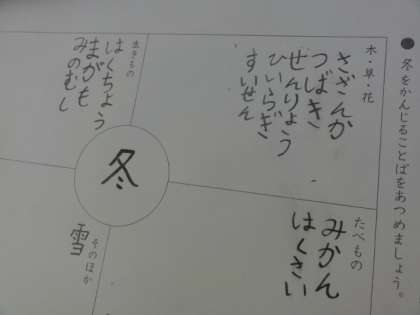 ●冬をかんじることばをあつめましょう。
木・草・花
さざんか
つばき
せんりょう
ひいらぎ
すいせん
生きもの
はくちょう
まがも
みのむし
冬
たべもの
みかん
はくさい
そのほか
雪